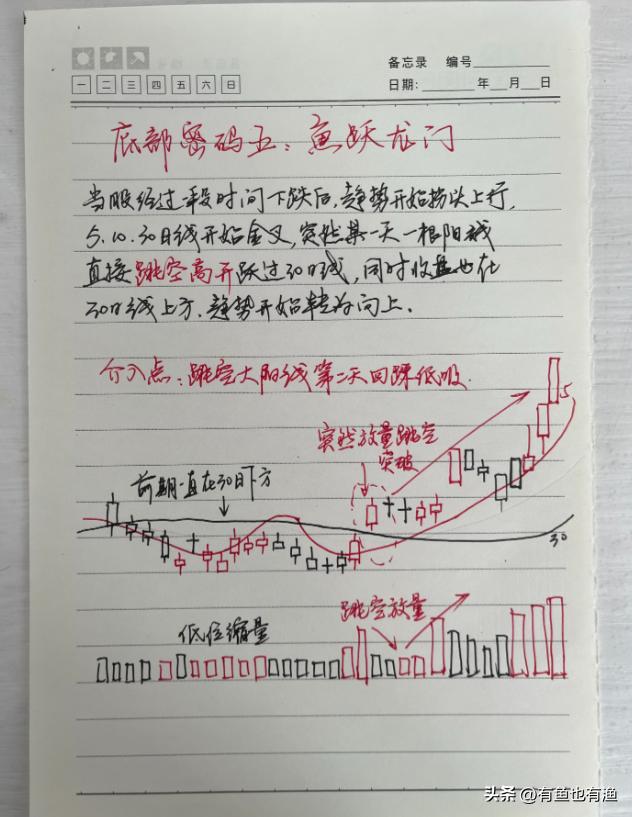 备忘录 编号
一 二 三 四 五 六 日
日期: 年 月 日
底部密码五:鱼跃龙门
当股经过一段时间下跌后,趋势开始拐头上行,
5.10.30日线开始金叉,突然某一天一根阳线
直接跳空高开跃过30日线,同时收盘也在
30日线上方,趋势开始转为向上.
介入点:跳空大阳线第二天回踩低吸.
5
突然放量跳空
突破
前期一直在30日下方
30
跳空放量
低位缩量
头条 @有鱼也有渔